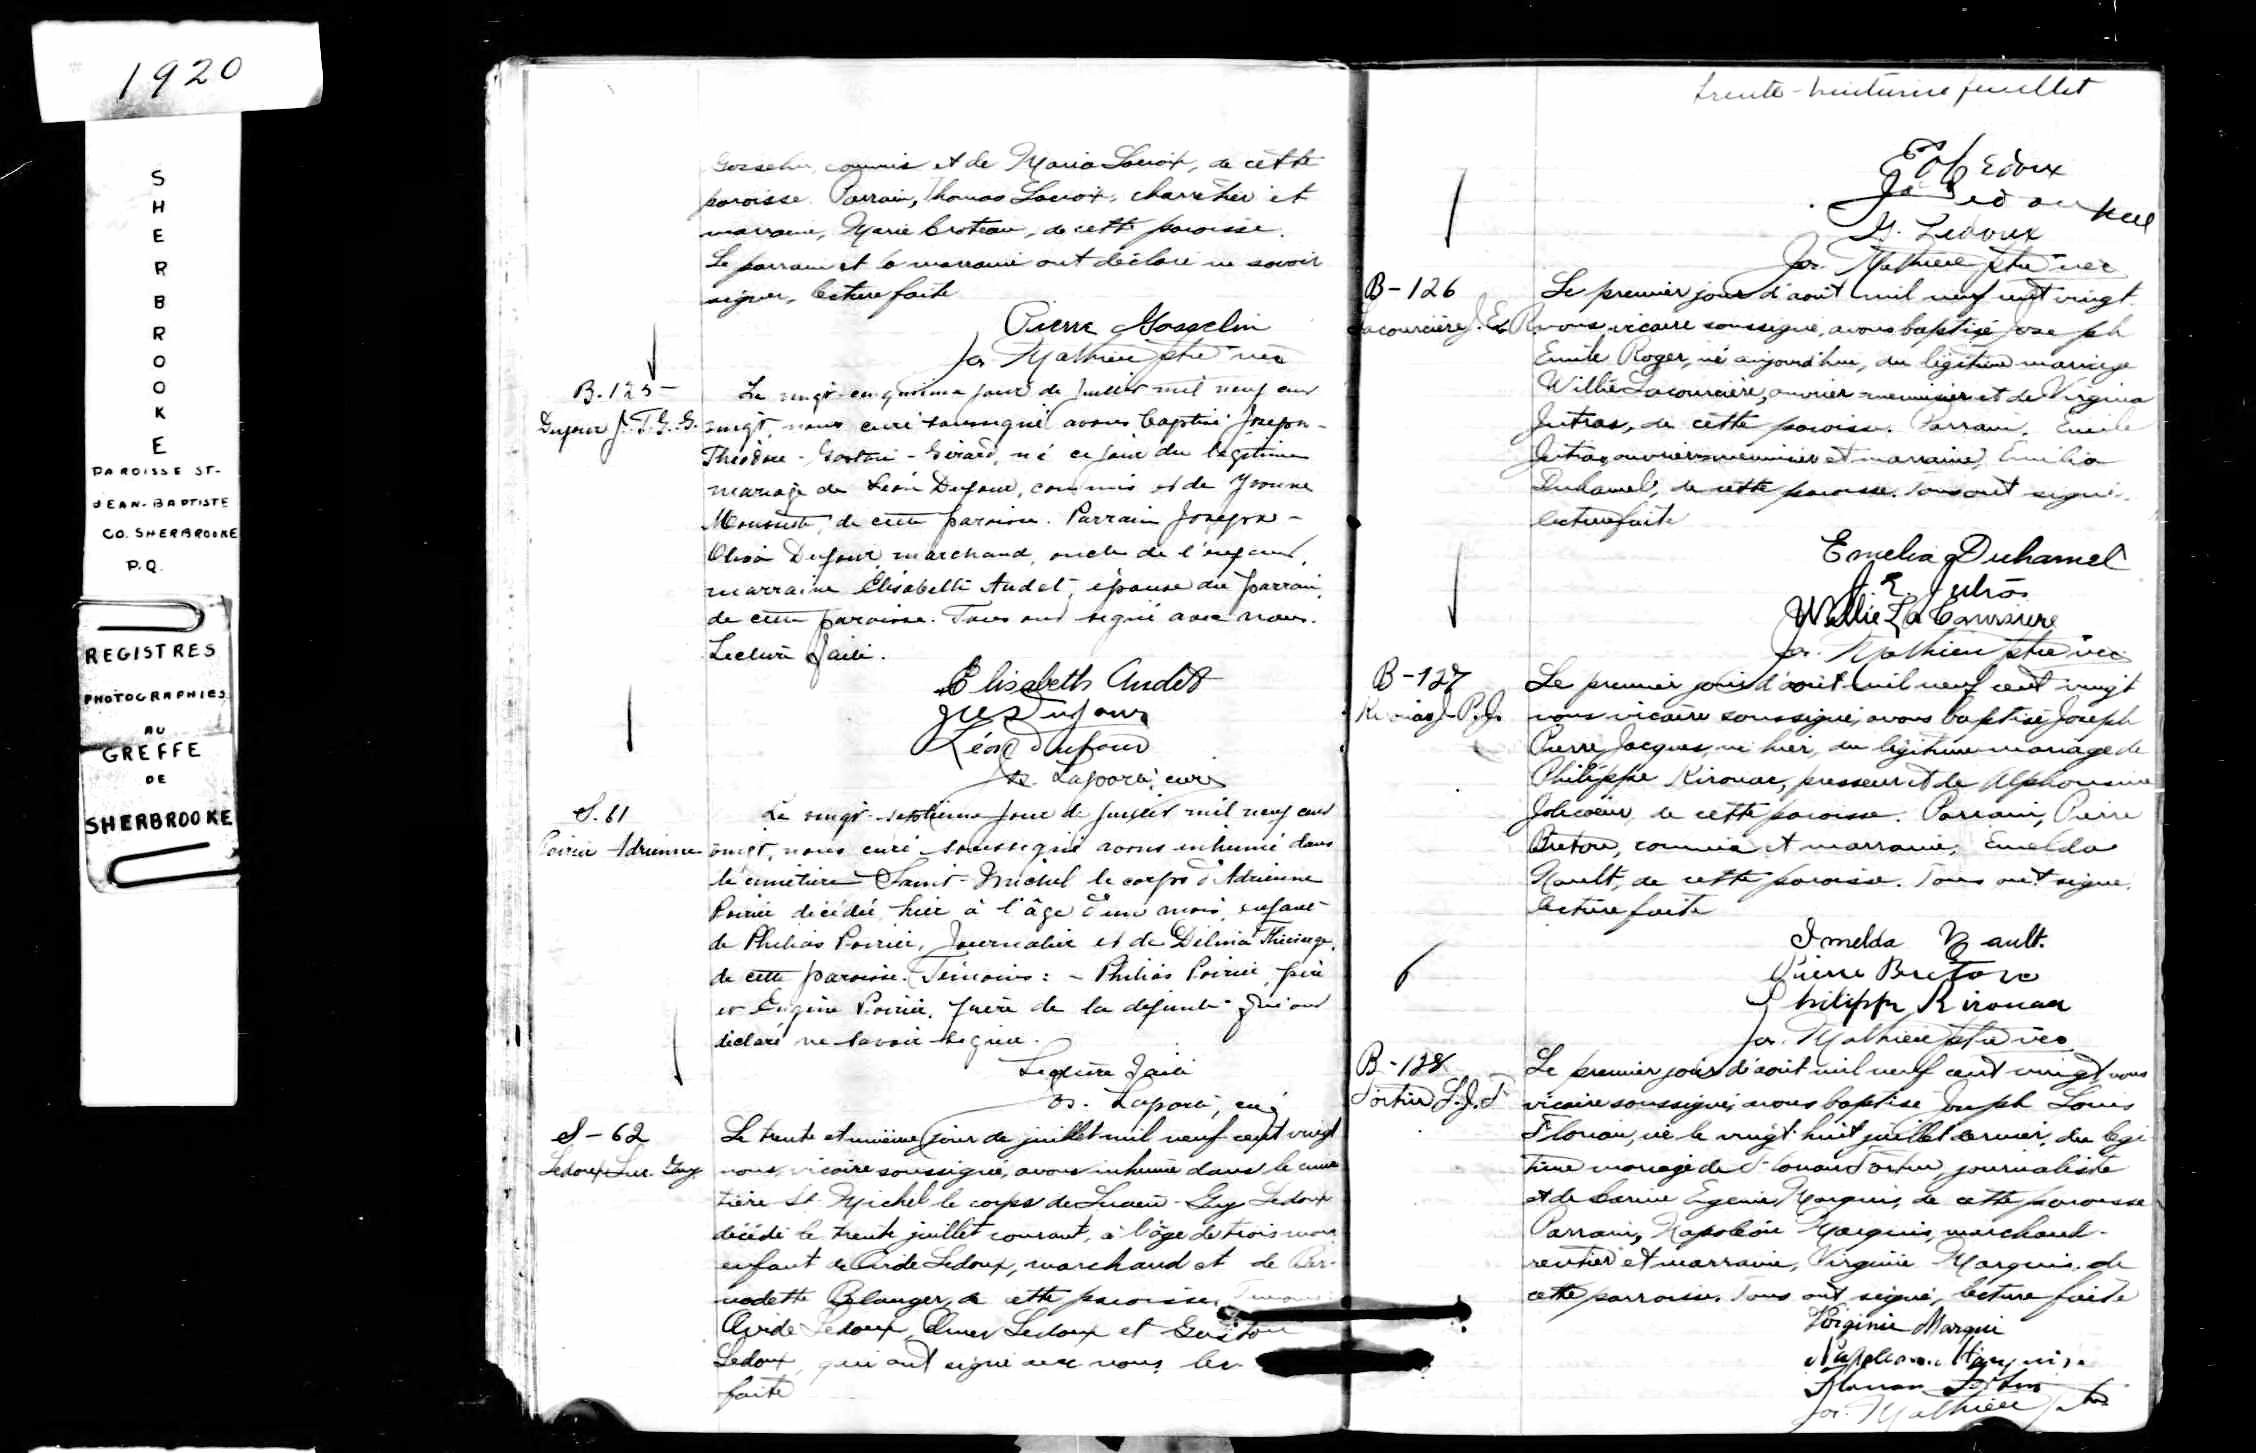 1920
S
H
E
R
B
R
O
O
K
E
PAROISSE ST-
JEAN-BAPTISTE
CO. SHERBROOKE
P.Q.
REGISTRES
PHOTOGRAPHIES
AU
GREFFE
DE
SHERBROOKE
Gosselin, commis et de Maria Lacroix, de cette
paroisse. Parrain, Thomas Lacroix, charretier et
marraine, Marie Croteau, de cette paroisse.
Le parrain et la marraine ont déclaré ne savoir
signer, lecture faite
Pierre Gosselin
Jos. Mathieu ptre vic
B. 125 -
Dufour J. T. G. G.
Le vingt-cinquième jour de juillet mil neuf cent
vingt, nous curé soussigné avons baptisé Joseph-
Théodore - Gaston - Gérard, né ce jour du légitime
mariage de Léon Dufour, commis et de Yvonne
de cette paroisse. Parrain Joseph-
Dufour, marchand, oncle de l'enfant,
marraine Elisabeth Audet, épouse du parrain,
de cette paroisse. Tous ont signé avec nous.
Lecture faite.
Elisabeth Audet
Dufour
Léon Dufour
Laporte, curé
S. 61
Poirier Adrienne
Le vingt-septième jour de juillet mil neuf cent
vingt, nous curé soussigné avons inhumé dans
le cimetière Saint-Michel le corps d'Adrienne
Poirier décédée hier à l'âge d'un mois, enfant
de Philias Poirier, journalier et de Délina Thivierge,
de cette paroisse. Témoins: - Philias Poirier, père
et Eugène Poirier, frère de la défunte qui ont
déclaré ne savoir signer.
Lecture faite
Laporte, curé
S - 62
Ledoux Luc. Guy
Le trente et unième jour de juillet mil neuf cent vingt
nous, vicaire soussigné, avons inhumé dans le cime
tière St. Michel le corps de Lucien - Guy Ledoux
décédé le trente juillet courant, à l'âge de trois mois
enfant de Ovide Ledoux, marchand et de Ber-
nadette Bélanger, de cette paroisse. Témoins
Ovide Ledoux, Omer Ledoux et Gaston
Ledoux, qui ont signé avec nous, lec
faite
trente-huitième feuillet
Ledoux
G. Ledoux
Jos. Mathieu ptre vic
B - 126
Lacourcière J. E. R.
Le premier jour d'août mil neuf cent vingt
nous vicaire soussigné, avons baptisé Joseph
Emile Roger, né aujourd'hui, du légitime mariage
Willie Lacourcière, ouvrier menuisier et de Virginia
Jutras, de cette paroisse. Parrain, Emile
Jutras, ouvrier menuisier et marraine, Emelia
Duhamel, de cette paroisse. Tous ont signé.
lecture faite
Emelia Duhamel
J. E. Jutras
Willie La Coursiere
Jos. Mathieu ptre vic
B - 127
Kirouac J. P. J.
Le premier jour d'août mil neuf cent vingt
nous vicaire soussigné, avons baptisé Joseph
Pierre Jacques, né hier, du légitime mariage de
Philippe Kirouac, presseur et de Alphonsine
Jolicoeur, de cette paroisse. Parrain, Pierre
Breton, commis et marraine, Emelda
Nault, de cette paroisse. Tous ont signé.
lecture faite
Imelda Nault.
Pierre Breton
Philippe Kirouac
Jos. Mathieu ptre vic
B - 128
Fortier L. J. F
Le premier jour d'août mil neuf cent vingt, nous
vicaire soussigné, avons baptisé Joseph Louis
Florian, né le vingt huit juillet dernier, du légi
time mariage de Florian Fortier, journaliste
et de Carine Eugenie Marquis, de cette paroisse
Parrain, Napoléon Marquis, marchand-
rentier et marraine, Virginie Marquis, de
cette parroisse. Tous ont signé, lecture faite
Virginie Marqui
Napoleon Marquis
Florian Fortier
Jos. Mathieu ptre